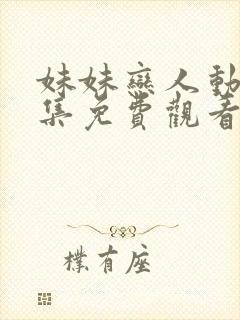 妹妹戀人動
集免費觀看
樸有座